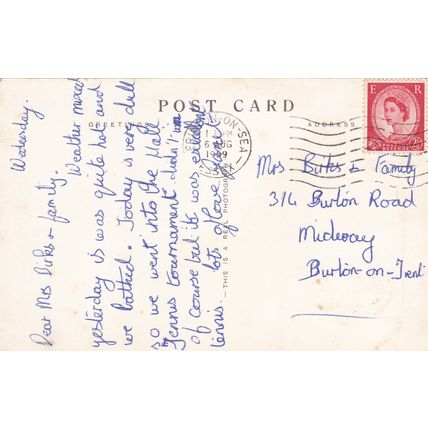 POST CARD
GREETINGS
ADDRESS
Wednesday.
Dear Mrs Birks & family.
Weather mixed
yesterday it was quite hot and
we bathed. Today is very dull
so we went into the Hall
Tennis tournament
of course but it was
tennis. lots of love
THIS IS A REAL PHOTOGRAPH
-ON-SEA
6 AUG
E R
POSTAGE REVENUE
2½D
Mrs Birks & Family
314 Burton Road
Midway
Burton-on-Trent